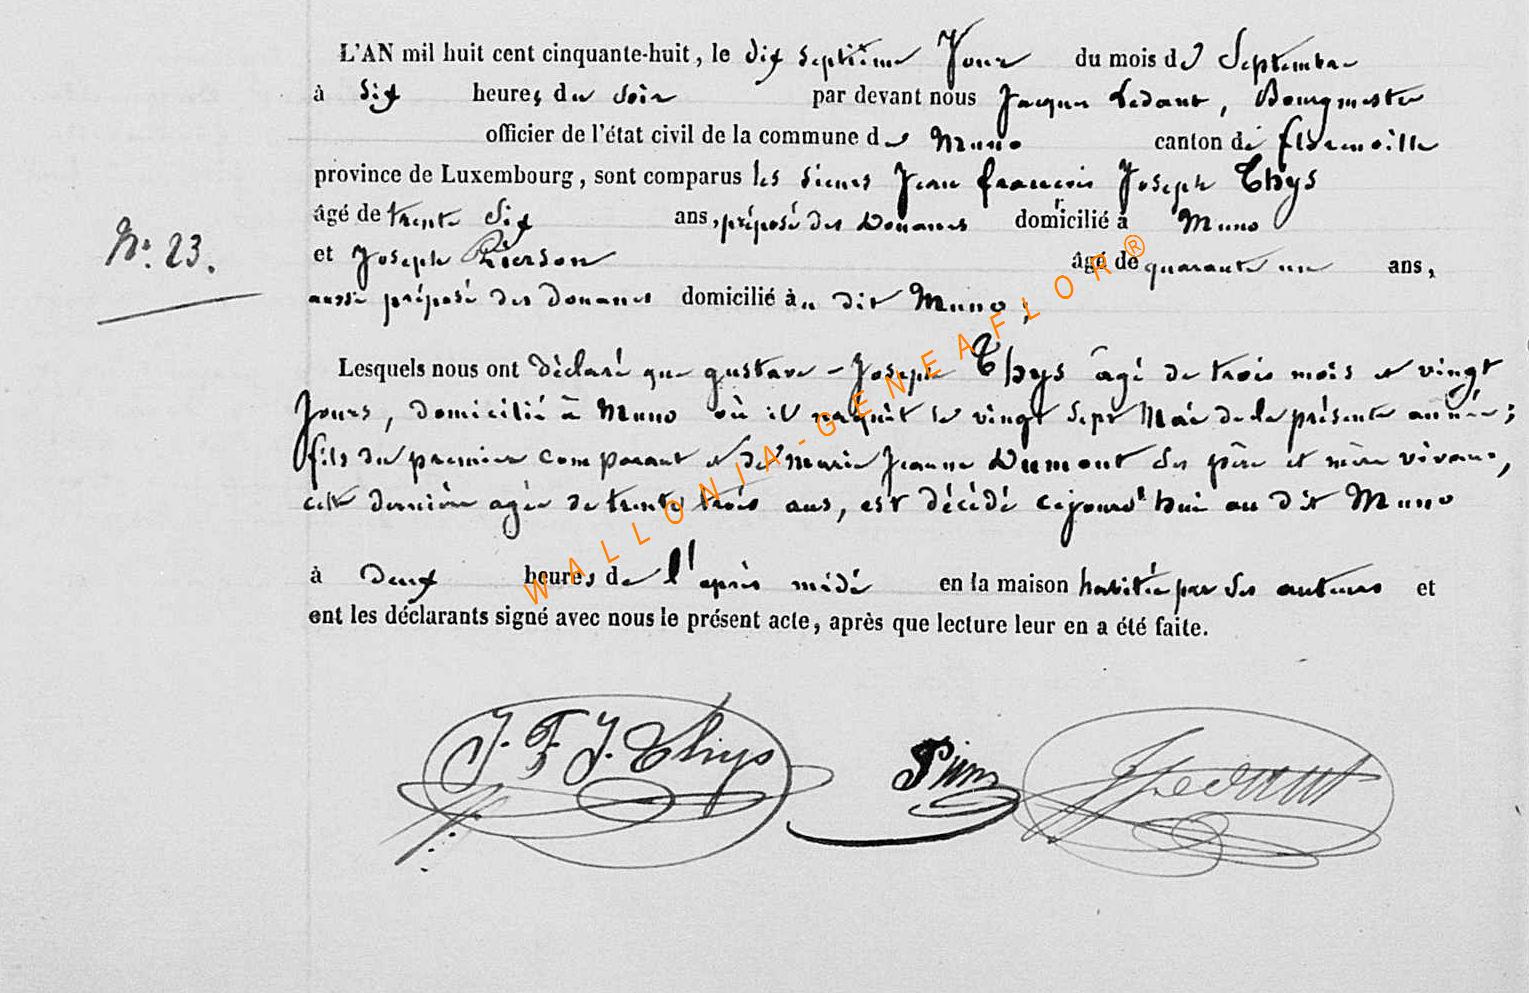 L'AN mil huit cent cinquante-huit, le dix septième Jour du mois de Septembre
à Six heures du soir par devant nous Jacques Ledant, Bourgmestre
officier de l'état civil de la commune de Muno canton de florenville
province de Luxembourg, sont comparus les sieurs Jean françois Joseph Thys
âgé de trente Six ans, préposé des Douanes domicilié à Muno
N° 23.
et Joseph Pierson âgé de quarante un ans,
aussi préposé des Douanes domicilié au dit Muno;
Lesquels nous ont déclaré que gustave-Joseph Thys âgé de trois mois et vingt
Jours, domicilié à Muno où il naquit le vingt sept Mai de la présente année;
fils du premier comparant et de Marie Jeanne Dumont ses père et mère vivans,
cette dernière agée de trente trois ans, est décédé cejourd'hui au dit Muno
à deux heures de l'après midi en la maison habitée par ses auteurs et
ont les déclarants signé avec nous le présent acte, après que lecture leur en a été faite.
J. F. J. Thys JLedant
WALLONIA-GENEAFLOR®